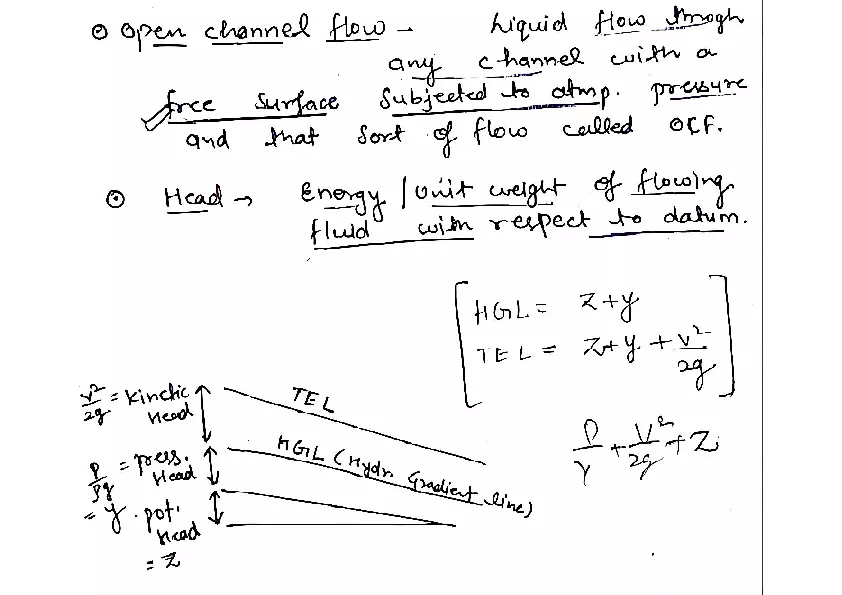 ⊙ Open channel flow - Liquid flow throgh
any channel with a
free surface subjected to atmp. pressure
and that sort of flow called OCF.
⊙ Head → Energy / Unit weight of flowing
fluid with respect to datum.
HGL = Z+y
TEL = Z+y + V²/2g
P/γ + V²/2g + Z
V²/2g = kinetic Head
TEL
P/ρg = press. Head
HGL (Hydr Gradient line)
= y
pot. Head
= Z